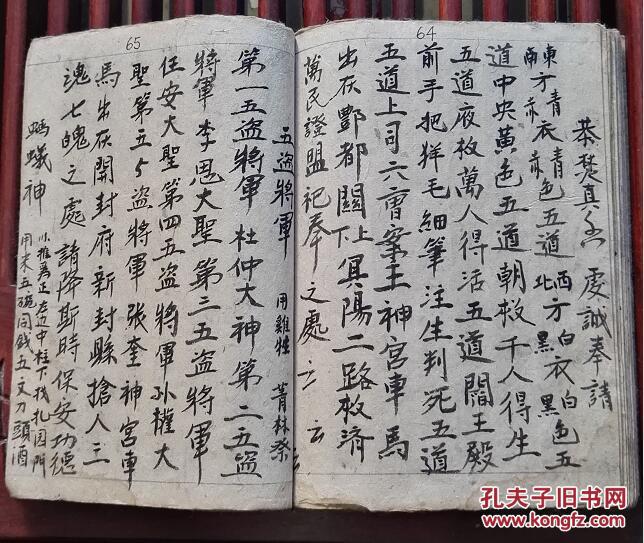 64
恭焚真香 虔誠奉請
東方青衣青色五道 西方白衣白色五
南 赤 赤 北 黑 黑
道中央黄色五道朝救千人得生
五道夜救萬人得活五道閻王殿
前手把羊毛細筆注生判死五道
五道上司六曹案王神宮車馬
出在酆都關上下冥陽二路救済
萬民證盟祀奉之處 云云
65
五盗將軍 用雞牲 菁林祭
第一五盗將軍杜仲大神第二五盗
將軍李思大聖第三五盗將軍
任安大聖第四五盗將軍孙權大
聖第五5盗將軍張奎神宮車
馬出在開封府新封縣搶人三
魂七魄之處請降斯時保安功德
螞蟻神
用米五碗同錢五文刀頭酒
孔夫子旧书网
www.kongfz.com